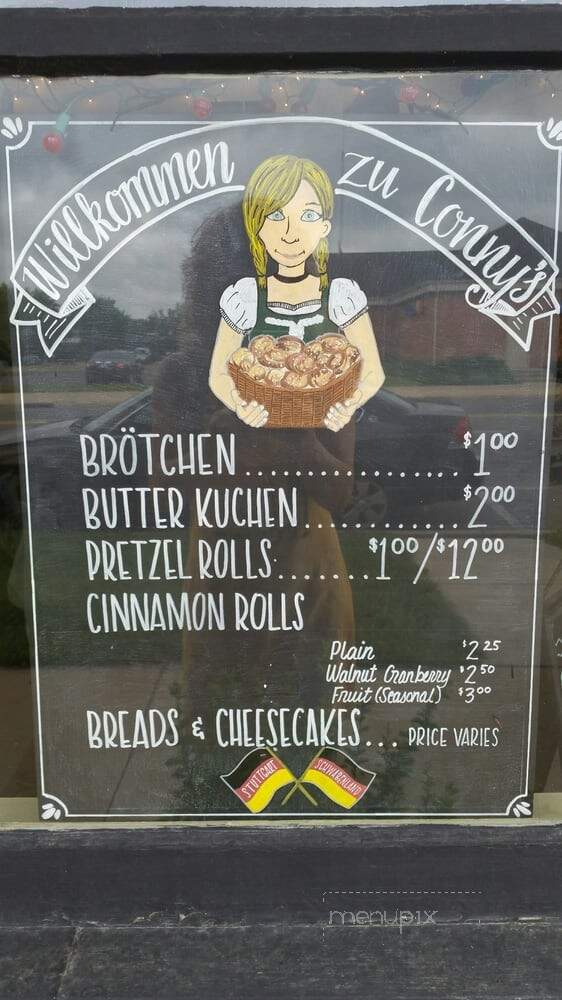 Willkommen zu Conny's
BRÖTCHEN.................$1.00
BUTTER KUCHEN............$2.00
PRETZEL ROLLS.......$1.00/$12.00
CINNAMON ROLLS
Plain $2.25
Walnut Cranberry $2.50
Fruit (Seasonal) $3.00
BREADS & CHEESECAKES... PRICE VARIES
STUTTGART SCHWABENLAND
menupix